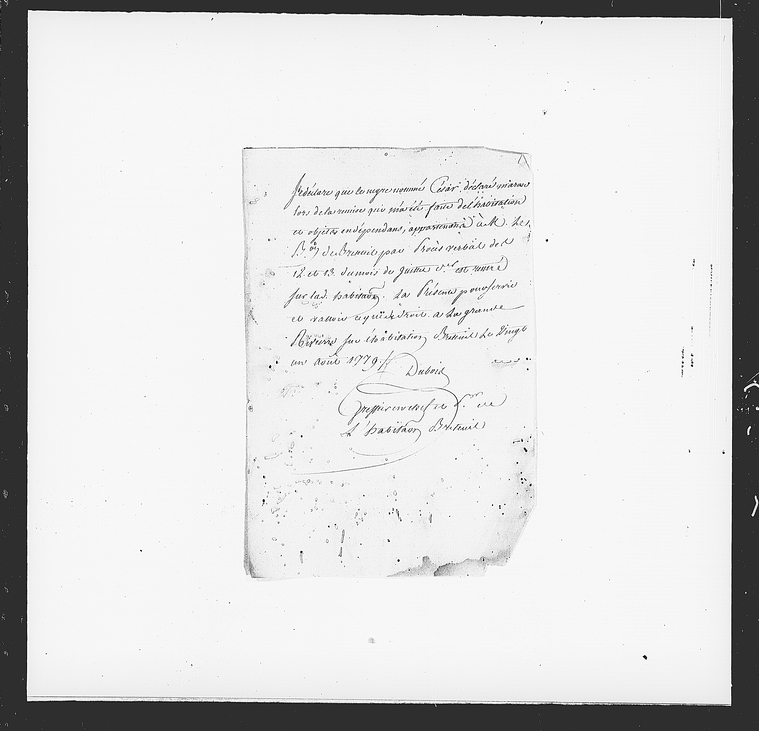 Je déclare que le negre nommé César, déclaré maron
lors de la remise qui m'a été faite de l'habitation
et objets en dépendans, appartenans à M. Le
B.on de Breteuil par Procès verbal des
12 et 13 du mois de Juillet d.er est rentré
sur lad. habitaon. La Présente pour servir
et valoir à qui de droit. à La grande
Riviere sur l'habitation Breteuil Le Vingt
un Août 1779
Dubois
de
L'habitaon Breteuil